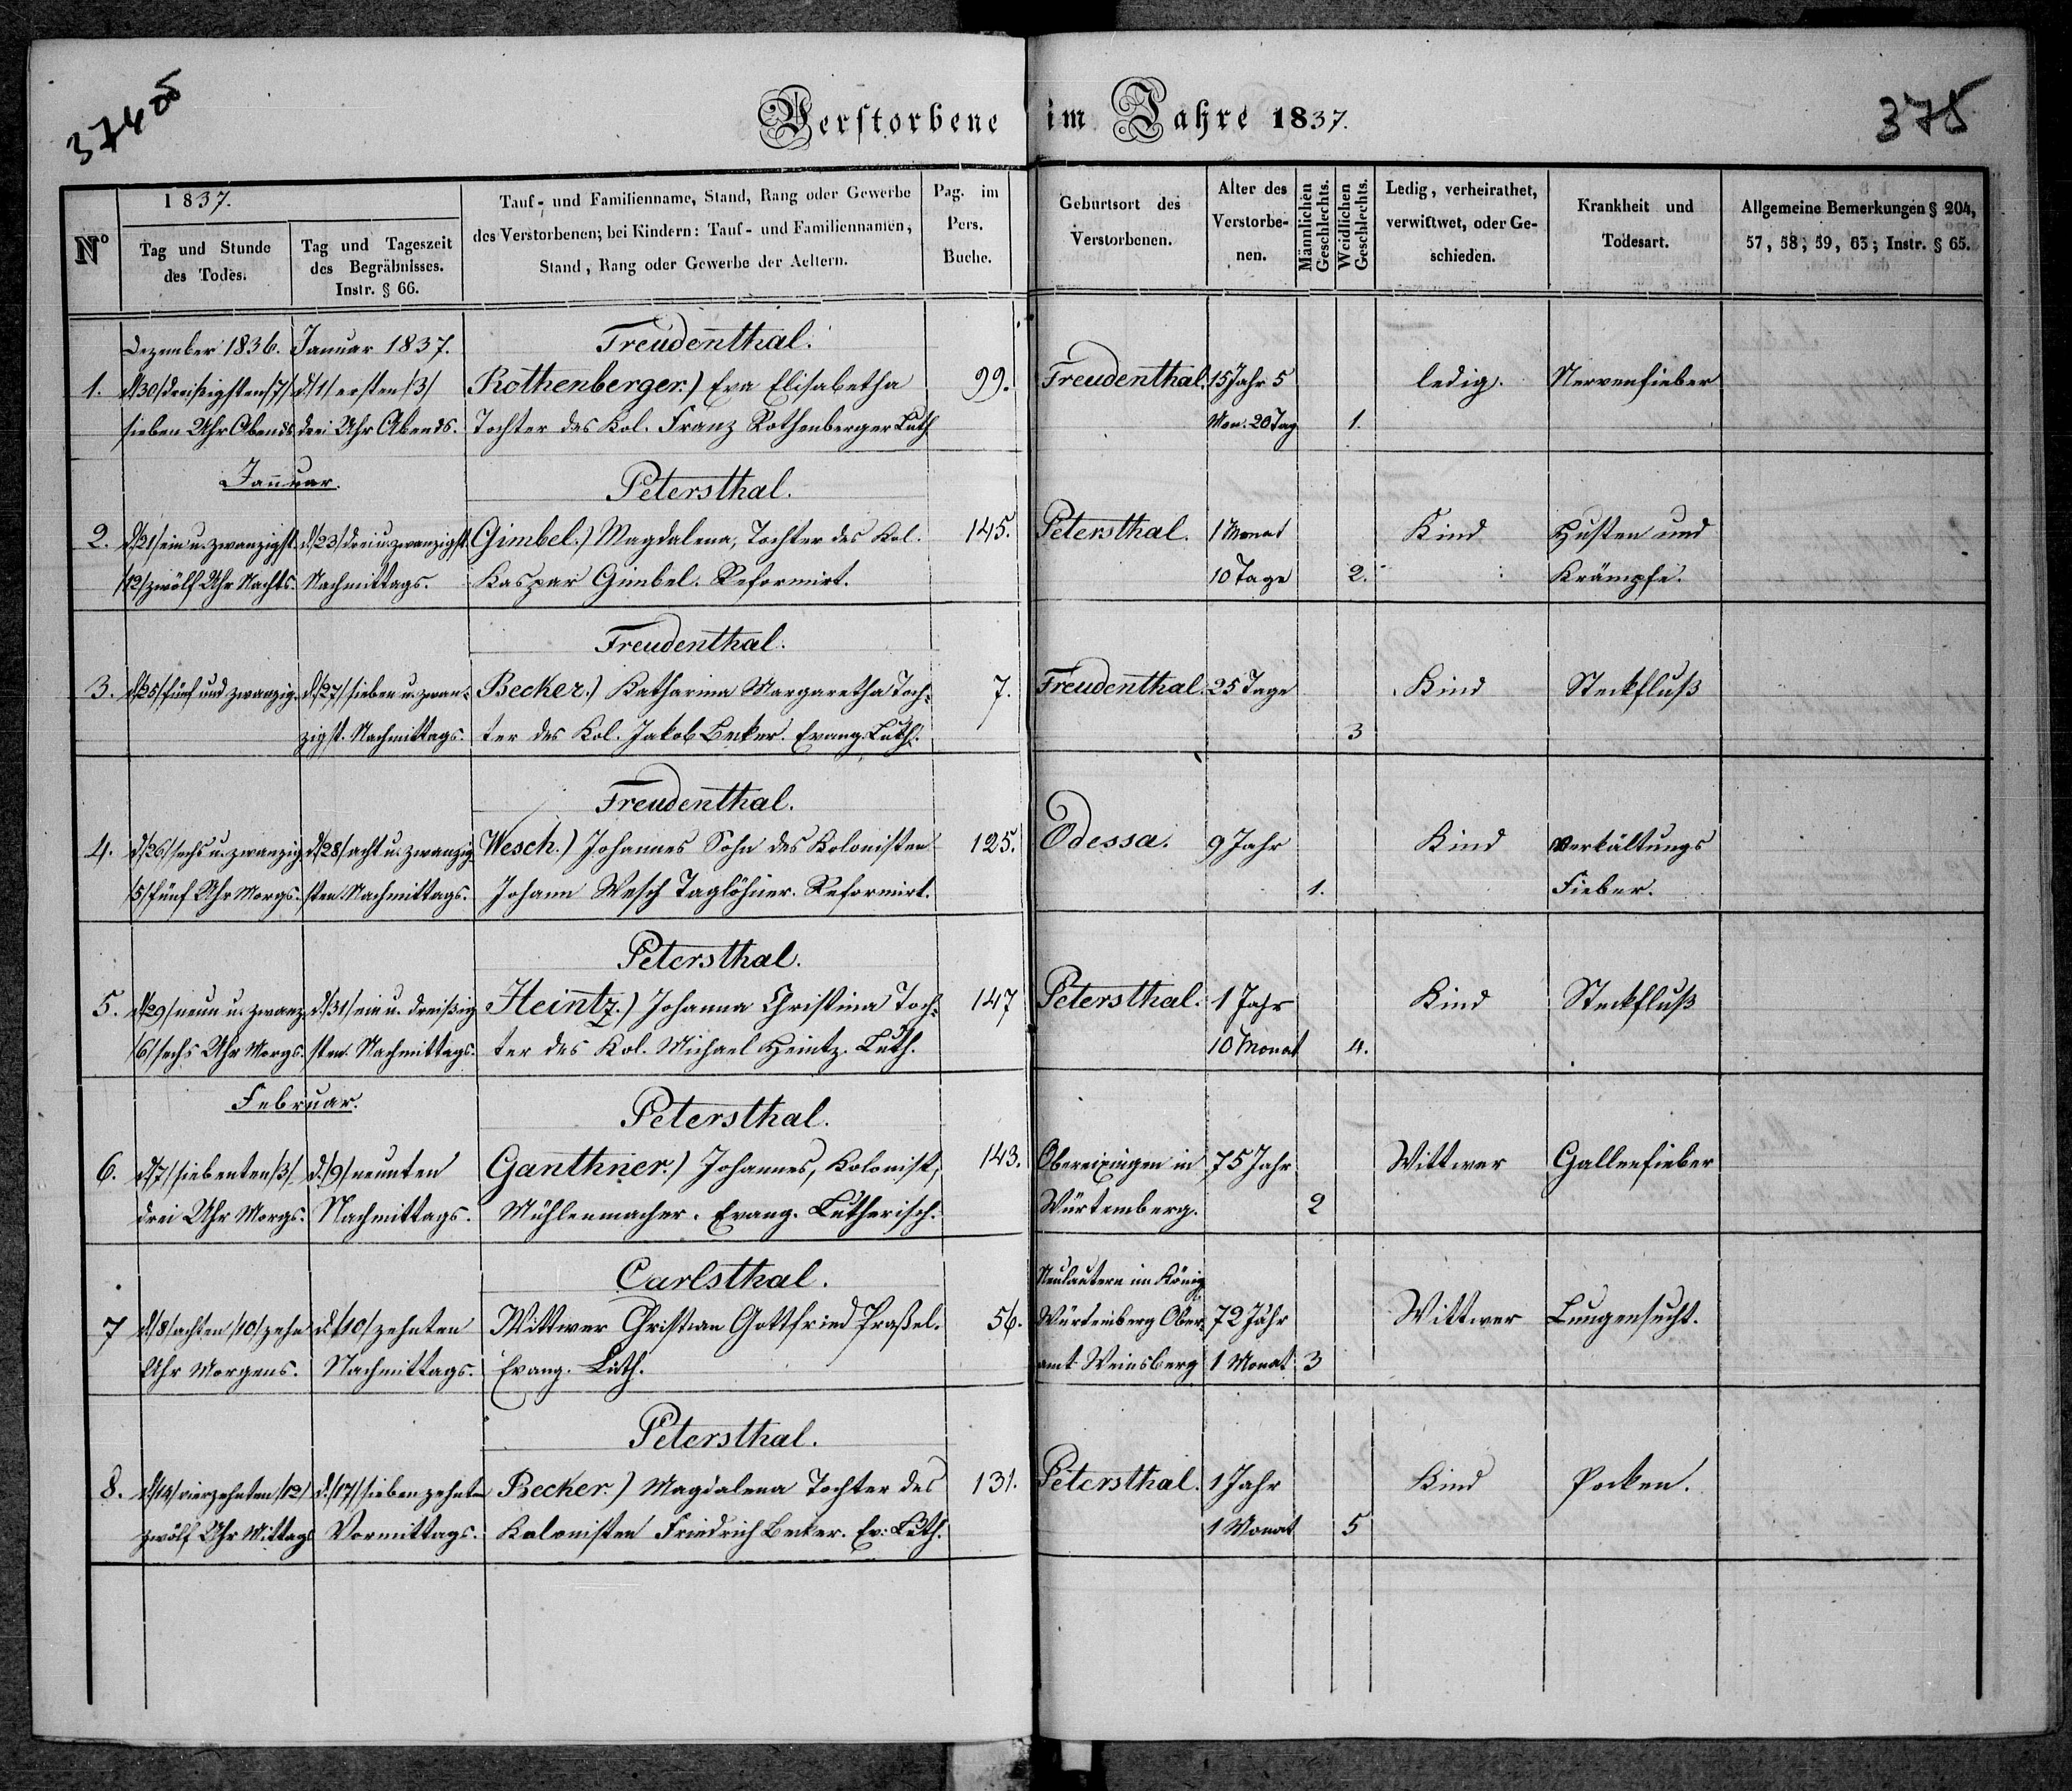 374 05
375
Verstorbene im Jahre 1837.
Nº
1837.
Tag und Stunde des Todes.
Tag und Tageszeit des Begräbnisses. Instr. § 66.
Tauf- und Familienname, Stand, Rang oder Gewerbe
des Verstorbenen; bei Kindern: Tauf- und Familiennamen,
Stand, Rang oder Gewerbe der Aeltern.
Pag. im Pers. Buche.
Geburtsort des Verstorbenen.
Alter des Verstorbe-nen.
Männlichen Geschlechts.
Weidlichen Geschlechts.
Ledig, verheirathet, verwittwet, oder Ge-schieden.
Krankheit und Todesart.
Allgemeine Bemerkungen § 204, 57, 58, 59, 63; Instr. § 65.
Dezember 1836. Januar 1837. Freudenthal.
1. d./30/ dreißigsten /7/ d./1/ ersten /3/ Rothenberger.) Eva Elisabetha 99. Freudenthal. 15 Jahr 5 ledig. Nervenfieber
sieben Uhr Abends drei Uhr Abends. Tochter des Kol. Franz Rothenberger Luth. Mon. 20 Tag 1.
Januar. Petersthal.
2. d./21/ ein u. zwanzigst. d./23/ drei u. zwanzigst. Gimbel.) Magdalena, Tochter des Kol. 145. Petersthal. 1 Monat Kind Husten und
/12/ zwölf Uhr Nachts. Nachmittags. Kaspar Gimbel. Reformirt. 10 Tage 2. Krämpfe.
Freudenthal.
3. d./25/ fünf und zwanzig. d./27/ sieben u. zwan- Becker.) Katharina Margaretha Toch- 7. Freudenthal. 25 Tage Kind Steckfluß
zigst. Nachmittags. ter des Kol. Jakob Becker. Evang. Luth. 3
Freudenthal.
4. d./26/ sechs u. zwanzig d./28/ acht u. zwanzig- Wesch.) Johannes Sohn des Kolonisten 125. Odessa. 9 Jahr Kind Verkältungs
/5/ fünf Uhr Morgs. sten Nachmittags. Johann Wesch Taglöhner. Reformirt. 1. Fieber.
Petersthal.
5. d./29/ neun u. zwanz. d./31/ ein u. dreißig Heintz.) Johanna Christina Toch- 147 Petersthal. 1 Jahr Kind Steckfluß
/6/ sechs Uhr Morgs. sten. Nachmittags. ter des Kol. Michael Heintz. Luth. 10 Monat 4.
Februar. Petersthal.
6. d./7/ siebenten /3/ d./9/ neunten Ganthner.) Johannes, Kolonist, 143. in 75 Jahr Wittwer Gallenfieber
drei Uhr Morgs. Nachmittags. Mühlenmacher. Evang. Lutherisch. Würtemberg. 2
Carlsthal. Neulautern im König
7 d./8/ achten /10/ zehn d./10/ zehnten Wittwer Christian Gottfried Praßel. 56. Würtemberg Ober- 72 Jahr Wittwer Lungensucht.
Uhr Morgens. Nachmittags. Evang. Luth. amt Weinsberg 1 Monat 3
Petersthal.
8. d./14/ vierzehnten /12/ d./17/ siebenzehnten Becker.) Magdalena Tochter des 131. Petersthal. 1 Jahr Kind Pocken.
zwölf Uhr Mittags Vormittags. Kolonisten Friedrich Becker. Ev: Luth. 1 Monat 5